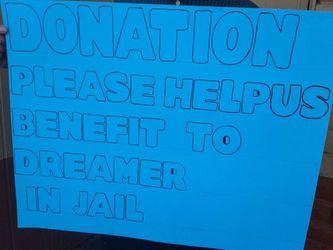 DONATION
PLEASE HELPUS
BENEFIT TO
DREAMER
IN JAIL